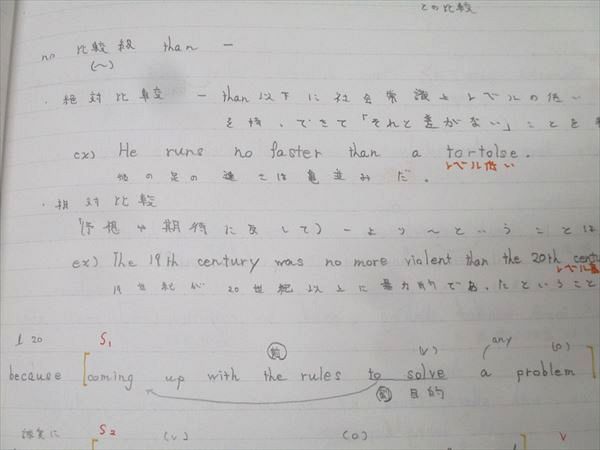 との比較
no 比較級 than ー
(〜)
・絶対比較 ー than以下に社会常識上レベルの低い
を持ってきて「それと差がない」ことを
ex) He runs no faster than a tortoise.
レベル低い
彼の足の速さは亀並みだ.
・相対比較
(予想や期待に反して) ーより〜ということは
ex) The 19th century was no more violent than the 20th
レベル高
19世紀が20世紀以上に暴力的であったということ
l 20 S1 (v) any (o)
because [coming up with the rules to solve a problem]
副 目的
S2 (v) (o) V